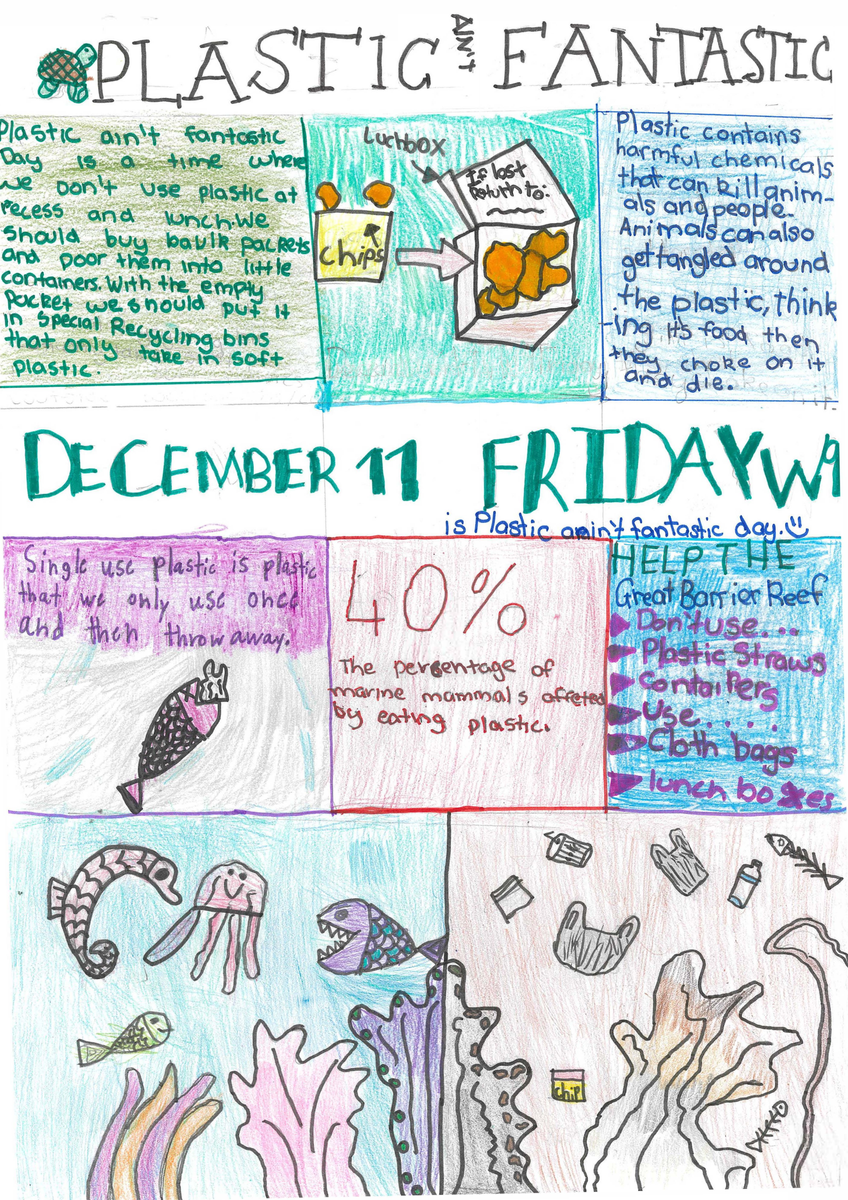 PLASTIC AIN'T FANTASTIC
Plastic ain't fantastic
Day is a time where
we Don't use plastic at
recess and lunch.We
should buy baulk packets
and poor them into little
containers. With the empty
packet we should put it
in special Recycling bins
that only take in soft
plastic.
Luchbox
If lost
return to:
chips
Plastic contains
harmful chemicals
that can kill anim-
als and people.
Animals can also
get tangled around
the plastic, think
-ing it's food then
they choke on it
and die.
DECEMBER 11 FRIDAY W9
is Plastic anin't fantastic day.
Single use plastic is plastic
that we only use once
and then throw away.
40%
The percentage of
marine mammals affeted
by eating plastic.
HELP THE
Great Barrier Reef
Don't use...
Plastic Straws
Containers
Use....
Cloth bags
lunch boxes
chip